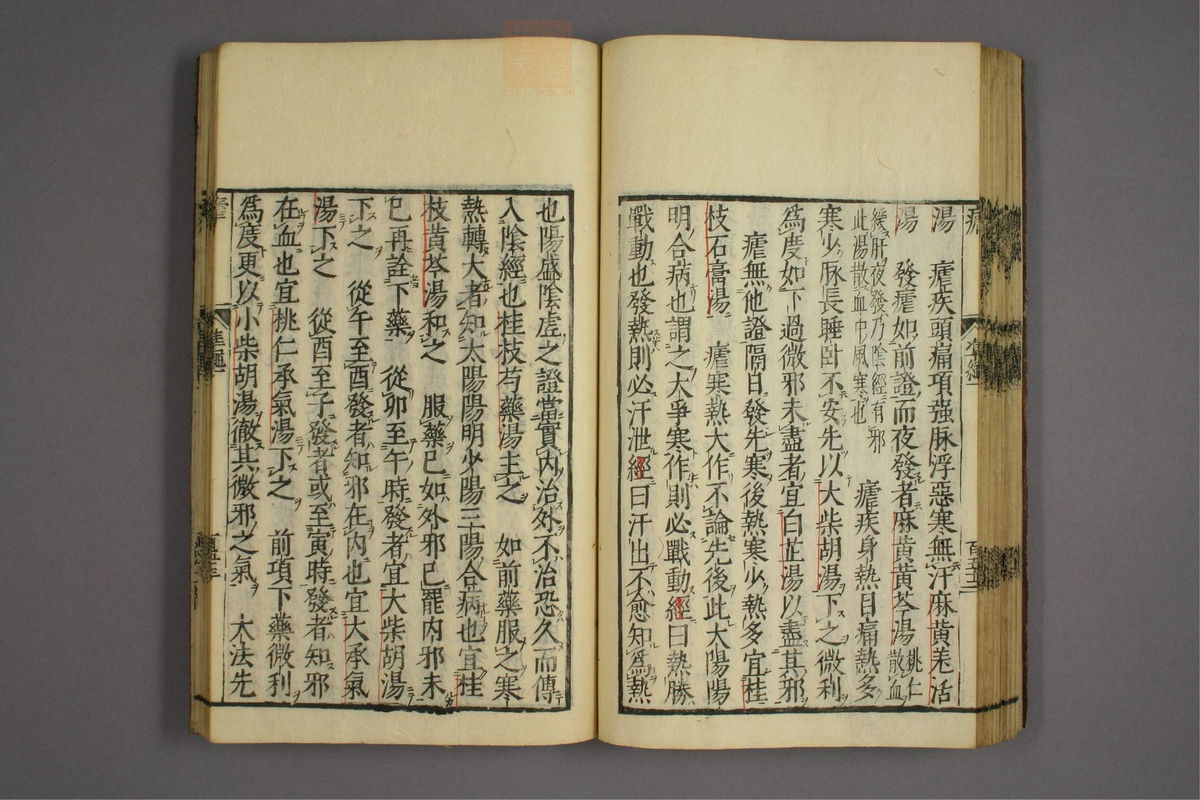 湯　瘧疾頭痛項強脉浮惡寒無汗麻黃羌活
湯　發瘧如前證而夜發者麻黃黃芩湯桃仁散血
緩肝夜發乃陰經有邪
此湯散血中風寒也
瘧疾身熱目痛熱多
寒少脉長睡卧不安先以大柴胡湯下之微利
爲度如下過微邪未盡者宜白芷湯以盡其邪
瘧無他證隔日發先寒後熱寒少熱多宜桂
枝石膏湯　瘧寒熱大作不論先後此太陽陽
明合病也謂之大爭寒作則必戰動經曰熱勝
戰動也發熱則必汗泄經曰汗出不愈知爲熱
也陽盛陰虛之證當實內治外不治恐久而傳
入陰經也桂枝芍藥湯主之　如前藥服之寒
熱轉大者知太陽陽明少陽三陽合病也宜桂
枝黃芩湯和之　服藥已如外邪已罷內邪未
已再詮下藥　從卯至午時發者宜大柴胡湯
下之　從午至酉發者知邪在內也宜大承氣
湯下之　從酉至子發者或至寅時發者知邪
在血也宜桃仁承氣湯下之　前項下藥微利
爲度更以小柴胡湯徹其微邪之氣　大法先